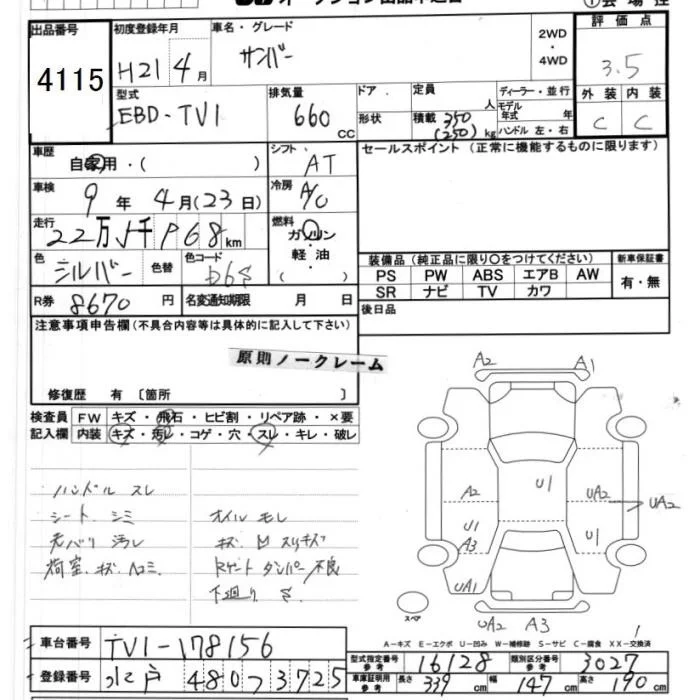 ①会場控
出品番号 4115
初度登録年月 H21年 4月
車名・グレード サンバー
2WD・4WD
評価点 3.5
外装 C 内装 C
型式 EBD-TV1
排気量 660 CC
ドア・形状
定員 人
積載 350 (250) kg
ディーラー・並行
モデル年式 年
ハンドル 左・右
車歴 自家用・( )
シフト AT
セールスポイント (正常に機能するものに限ります)
車検 9年 4月(23日)
冷房 A/C
走行 22万 千 968 km
燃料 ガソリン 軽油 ( )
色 シルバー 色替
色コード
装備品 (純正品に限り○をつけてください)
新車保証書 有・無
PS PW ABS エアB AW
SR ナビ TV カワ
R券 8670 円
名変通知期限 月 日
後日品
注意事項申告欄 (不具合内容等は具体的に記入して下さい)
原則ノークレーム
修復歴 有 〔箇所 〕
検査員記入欄
FW キズ・飛石・ヒビ割・リペア跡・×要
内装 キズ・汚レ・コゲ・穴・スレ・キレ・破レ
ハンドル スレ
シート シミ
天バリ 汚レ
荷室 キズ ヘコミ
オイル モレ
キズ
ダンパー 不良
下廻り サ
A2 A1
A2 U1 UA2 UA2
U1 A3 U1
UA1
UA2 A3
スペア
A-キズ E-エクボ U-凹み W-補修跡 S-サビ C-腐食 XX-交換済
車台番号 TV1-178156
登録番号 水戸 480 3725
型式指定番号 参考 16128
類別区分番号 参考 3027
車庫証明用 参考 長さ 339 cm 幅 147 cm 高さ 190 cm